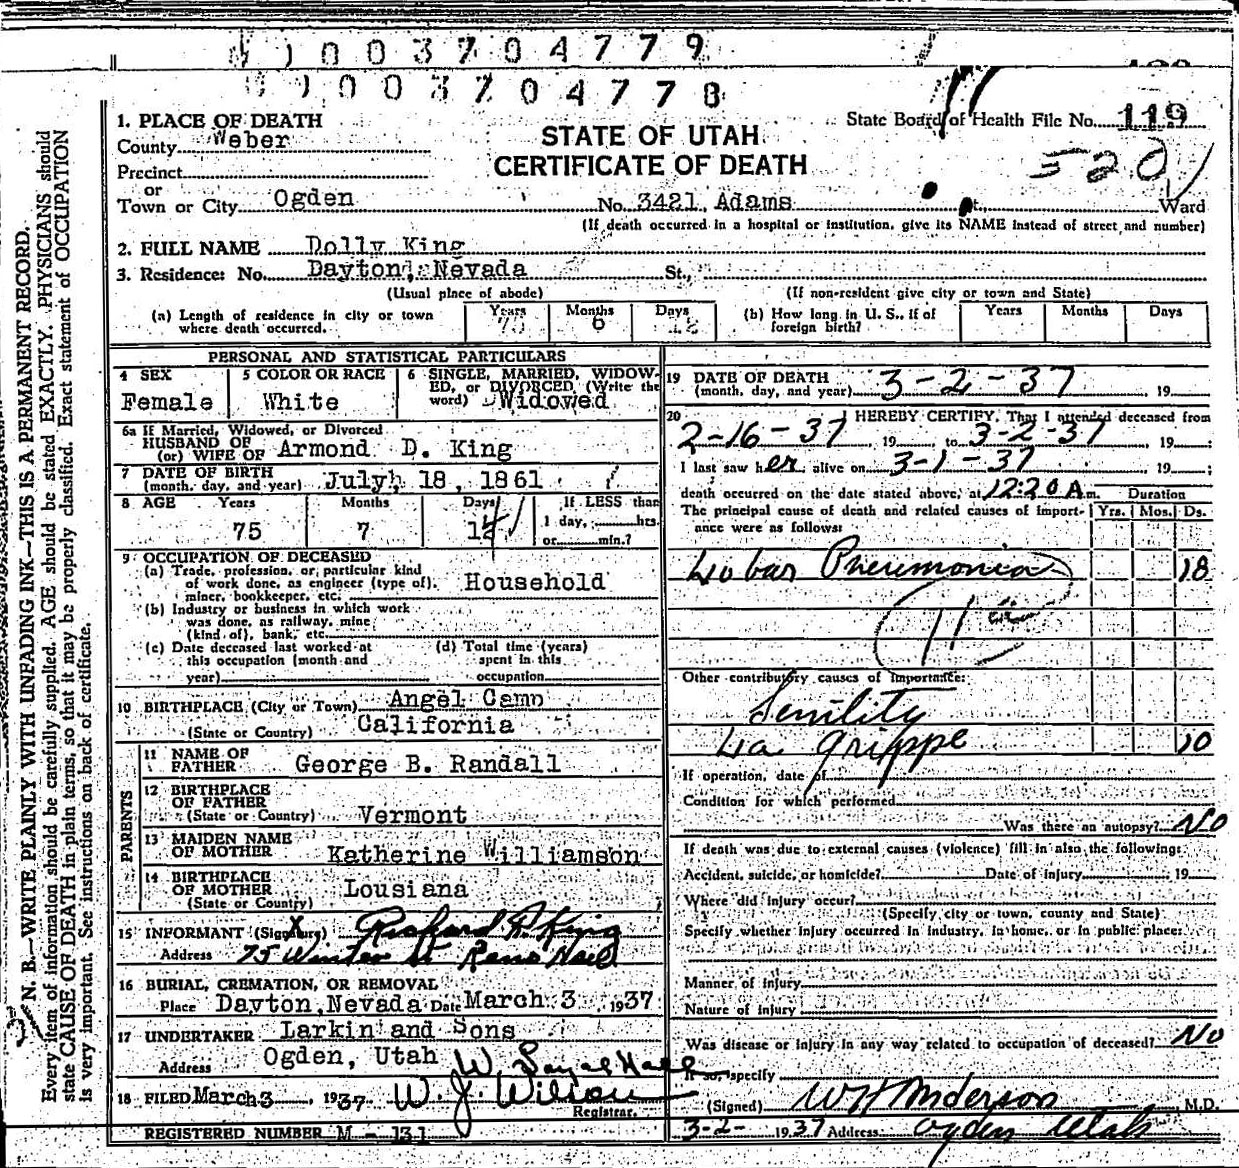 0 0 3 7 0 4 7 7 9
0 0 3 7 0 4 7 7 8
1. PLACE OF DEATH
County Weber
Precinct
or
Town or City Ogden
STATE OF UTAH
CERTIFICATE OF DEATH
State Board of Health File No. 119
520
No. 3421 Adams St., Ward
(If death occurred in a hospital or institution, give its NAME instead of street and number)
2. FULL NAME Dolly King
3. Residence: No. Dayton, Nevada St.,
(Usual place of abode) (If non-resident give city or town and State)
(a) Length of residence in city or town where death occurred. Years Months 6 Days
(b) How long in U. S., if of foreign birth? Years Months Days
PERSONAL AND STATISTICAL PARTICULARS
4 SEX
Female
5 COLOR OR RACE
White
6 SINGLE, MARRIED, WIDOW-
ED, or DIVORCED (Write the
word) Widowed
6a If Married, Widowed, or Divorced
HUSBAND OF
(or) WIFE OF Armond D. King
7 DATE OF BIRTH
(month, day, and year) July 18, 1861
8 AGE Years Months Days If LESS than
75 7 14 1 day, hrs.
or min.?
9 OCCUPATION OF DECEASED
(a) Trade, profession, or particular kind
of work done, as engineer (type of), Household
miner, bookkeeper, etc.
(b) Industry or business in which work
was done, as railway, mine
(kind of), bank, etc.
(c) Date deceased last worked at
this occupation (month and
year)
(d) Total time (years)
spent in this
occupation
10 BIRTHPLACE (City or Town) Angel Camp
(State or Country) California
PARENTS
11 NAME OF
FATHER George B. Randall
12 BIRTHPLACE
OF FATHER
(State or Country) Vermont
13 MAIDEN NAME
OF MOTHER Katherine Williamson
14 BIRTHPLACE
OF MOTHER Lousiana
(State or Country)
15 INFORMANT (Signature) Richard R. King
Address 75 Winter St Reno Nev
16 BURIAL, CREMATION, OR REMOVAL
Place Dayton, Nevada Date March 3 1937
17 UNDERTAKER Larkin and Sons
Address Ogden, Utah
18 FILED March 3, 1937 W. J. Wilson
Registrar.
REGISTERED NUMBER M - 131
19 DATE OF DEATH
(month, day, and year) 3-2-37 19
20 I HEREBY CERTIFY, That I attended deceased from
2-16-37, 19 to 3-2-37 19 ;
I last saw her alive on 3-1-37 19 ;
death occurred on the date stated above, at 12:20 A m. Duration
The principal cause of death and related causes of import-
ance were as follows: Yrs. Mos. Ds.
Lobar Pneumonia 18
Other contributory causes of importance:
Senility
La grippe 10
If operation, date of
Condition for which performed
Was there an autopsy? No
If death was due to external causes (violence) fill in also the following:
Accident, suicide, or homicide? Date of injury 19
Where did injury occur?
(Specify city or town, county and State)
Specify whether injury occurred in industry, in home, or in public place:
Manner of injury
Nature of injury
Was disease or injury in any way related to occupation of deceased? No
If so, specify
(Signed) W H Anderson M.D.
3-2- 1937 Address: Ogden Utah
N. B.—WRITE PLAINLY WITH UNFADING INK—THIS IS A PERMANENT RECORD.
Every item of information should be carefully supplied. AGE should be stated EXACTLY. PHYSICIANS should
state CAUSE OF DEATH in plain terms, so that it may be properly classified. Exact statement of OCCUPATION
is very important. See instructions on back of certificate.